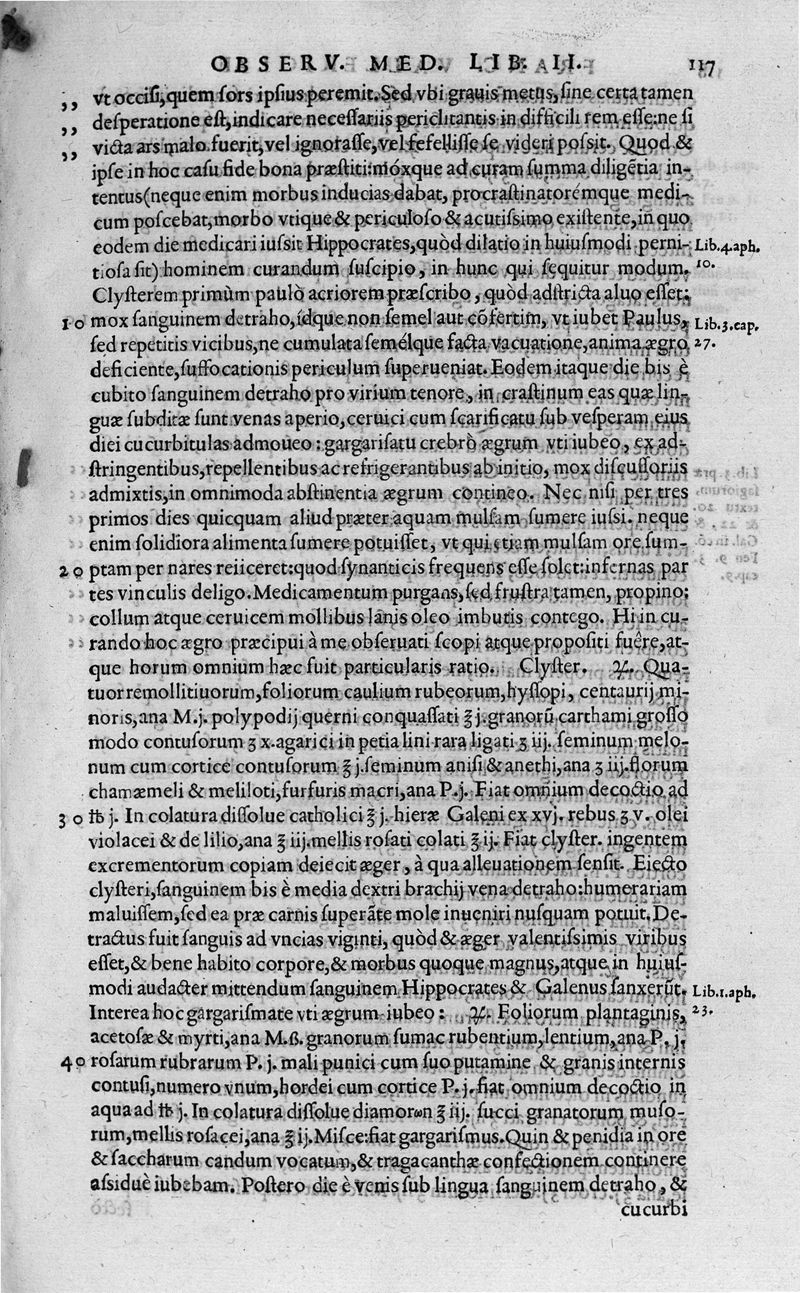 OBSERV. MED. LIB. II. 117
,, vt occiſi, quem ſors ipſius peremit. Sed vbi grauis metus, ſine certa tamen
,, deſperatione eſt, indicare neceſſariis periclitantis in difficili rem eſſe: ne ſi
,, victa ars malo fuerit, vel ignoraſſe, vel fefelliſſe ſe videri poſsit. Quod &
ipſe in hoc caſu fide bona præſtiti: móxque ad curam ſumma diligẽtia in-
tentus (neque enim morbus inducias dabat, procraſtinatorémque medi-
cum poſcebat, morbo vtique & periculoſo & acutiſsimo exiſtente, in quo
eodem die medicari iuſsit Hippocrates, quòd dilatio in huiuſmodi perni- Lib. 4. aph.
tioſa ſit) hominem curandum ſuſcipio, in hunc qui ſequitur modum. 10.
Clyſterem primùm paulò acriorem præſcribo, quòd adſtricta aluo eſſet:
10 mox ſanguinem detraho, ídque non ſemel aut cõfertim, vt iubet Paulus, Lib. 3. cap.
ſed repetitis vicibus, ne cumulata ſemélque facta vacuatione, anima ægro 27.
deficiente, ſuffocationis periculum ſuperueniat. Eodem itaque die bis è
cubito ſanguinem detraho pro virium tenore, in craſtinum eas quæ lin-
guæ ſubditæ ſunt venas aperio, ceruici cum ſcarificatu ſub veſperam eius
diei cucurbitulas admoueo: gargariſatu crebrò ægrum vti iubeo, ex ad-
ſtringentibus, repellentibus ac refrigerantibus ab initio, mox diſcuſſoriis
admixtis, in omnimoda abſtinentia ægrum contineo. Nec niſi per tres
primos dies quicquam aliud præter aquam mulſam ſumere iuſsi. neque
enim ſolidiora alimenta ſumere potuiſſet, vt qui etiam mulſam ore ſum-
20 ptam per nares reiiceret: quod ſynanticis frequens eſſe ſolet: infernas par
tes vinculis deligo. Medicamentum purgans, ſed fruſtra tamen, propino:
collum atque ceruicem mollibus lanis oleo imbutis contego. Hi in cu-
rando hoc ægro præcipui à me obſeruati ſcopi atque propoſiti fuêre, at-
que horum omnium hæc fuit particularis ratio. Clyſter. ℞. Qua-
tuor remollitiuorum, foliorum caulium rubeorum, hyſſopi, centaurij mi-
noris, ana M.j. polypodij querni conquaſſati ℥ j. granorũ carthami groſſo
modo contuſorum ʒ x. agarici in petia lini rara ligati ʒ iij. ſeminum melo-
num cum cortice contuſorum ℥ j. ſeminum aniſi & anethi, ana ʒ iij. florum
chamæmeli & meliloti, furfuris macri, ana P.j. Fiat omnium decoctio ad
30 ℔ j. In colatura diſſolue catholici ℥ j. hieræ Galeni ex xvj. rebus ʒ v. olei
violacei & de lilio, ana ℥ iij. mellis roſati colati ℥ ij. Fiat clyſter. ingentem
excrementorum copiam deiecit æger, à qua alleuationem ſenſit. Eiecto
clyſteri, ſanguinem bis è media dextri brachij vena detraho: humerariam
maluiſſem, ſed ea præ carnis ſuperãte mole inueniri nuſquam potuit. De-
tractus fuit ſanguis ad vncias viginti, quòd & æger valentiſsimis viribus
eſſet, & bene habito corpore, & morbus quoque magnus, atque in huiuſ-
modi audacter mittendum ſanguinem Hippocrates & Galenus ſanxerũt. Lib. 1. aph.
Interea hoc gargariſmate vti ægrum iubeo: ℞. Foliorum plantaginis, 23.
acetoſæ & myrti, ana M.ß. granorum ſumac rubentium, lentium, ana P. j.
40 roſarum rubrarum P. j. mali punici cum ſuo putamine & granis internis
contuſi, numero vnum, hordei cum cortice P. j. fiat omnium decoctio in
aqua ad ℔ j. In colatura diſſolue diamorωn ℥ iij. ſucci granatorum muſo-
rum, mellis roſacei, ana ℥ ij. Miſce: fiat gargariſmus. Quin & penidia in ore
& ſaccharum candum vocatum, & tragacanthæ confectionem continere
aſsiduè iubebam. Poſtero die è venis ſub lingua ſanguinem detraho, &
cucurbi